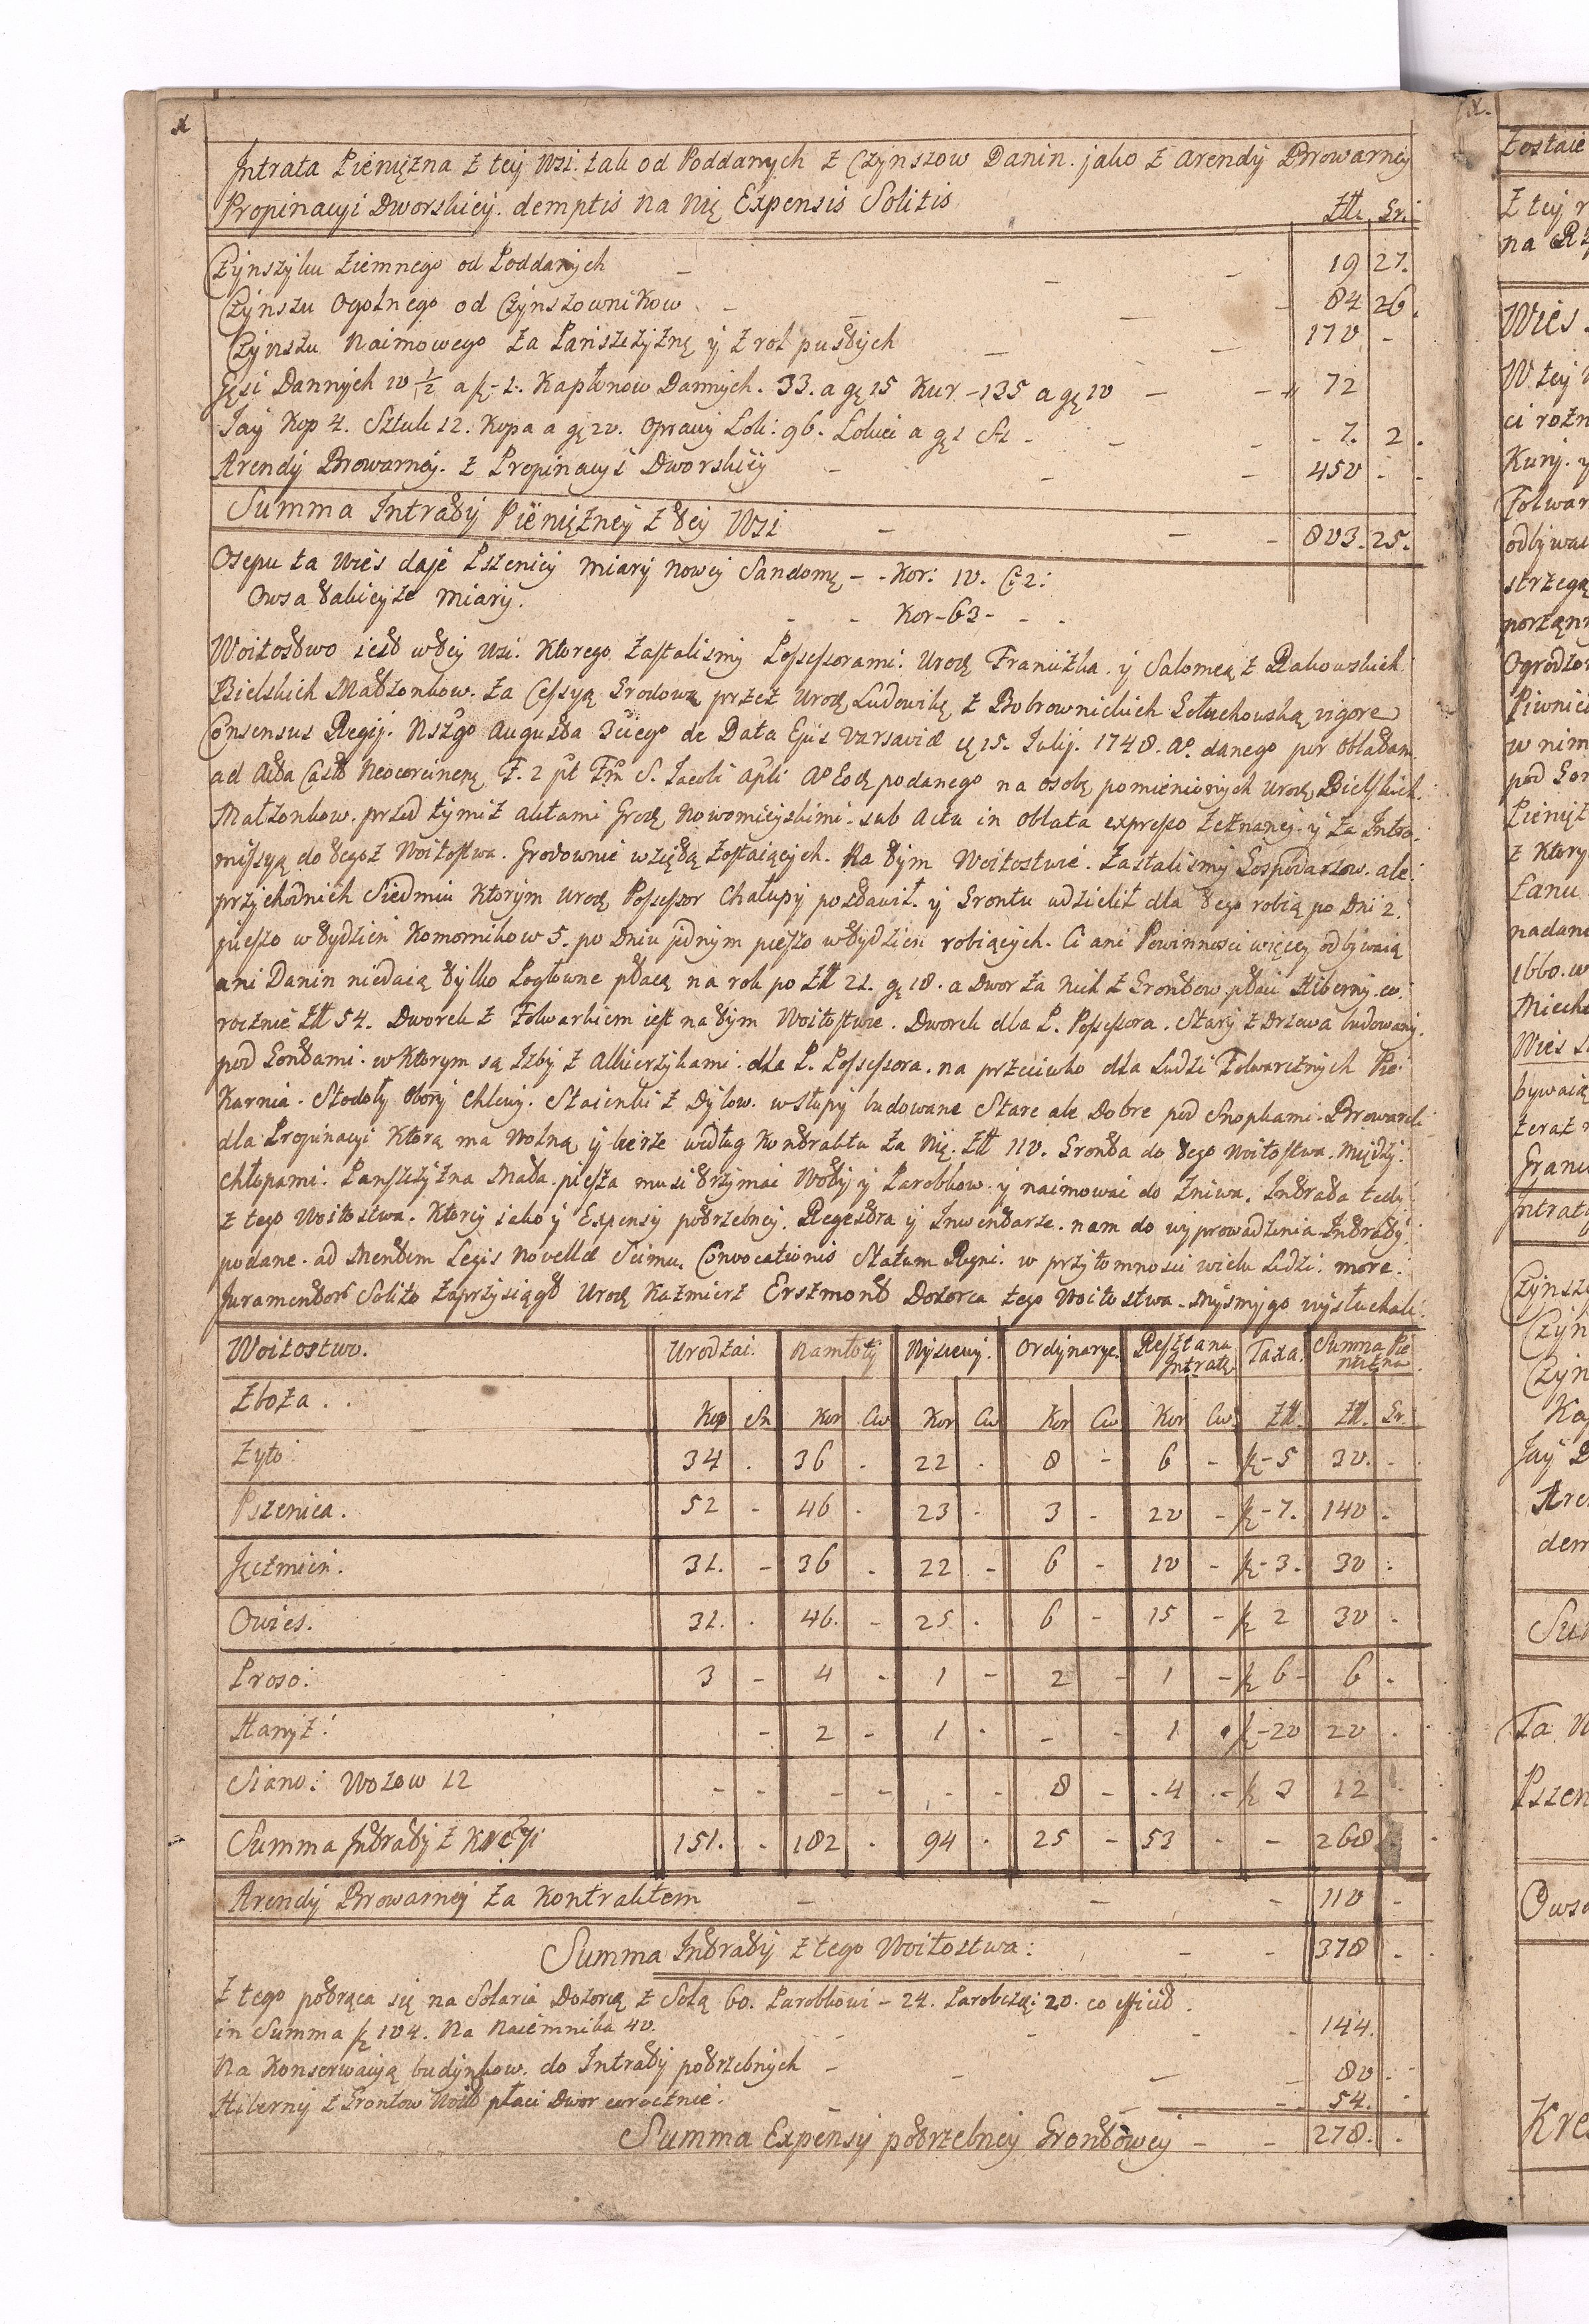 Jntrata Pienięzna z tey Wsi. tak od Poddanych z Czynszow Danin. jako z Arendy Browarney
Propinacyi Dworskiey. demptis na nię Expensis Solitis
Złł. Gr.
Czynszyku Ziemnego od Poddanych - - - 19 27.
Czynszu Ogolnego od Czynszownikow - - - 84 26.
Czynszu Naimowego za Panszczyznę y z rol pustych - - 170 -
Gęsi Dannych 10 1/2 a zł - 1. Kapłonow Dannych. 33. a gr 15 Kur - 135 a gr 10 - - 72
Jay Kop 4. Sztuk 12. Kopa a gr 20. Oprawy Łok: 96. Łokci a gr 1 - - - 7. 2.
Arendy Browarney. z Propinacyi Dworskiey - - - 450 - -
Summa Intraty Pienięzney z tey Wsi - - - 803. 25.
Osepu ta Wieś daje Pszenicy miary nowey Sandomr - - Kor: 10. C: 2:
Owsa takieyze miary. - - Kor - 63 - - -
Woitostwo iest w tey Wsi. Ktorego zastalismy Possessorami. Urodz Franciszka. y Salomeą z Rakowskich
Bielskich Małzonkow. za Cessyą Grodową przez Urodz Ludowikę z Bobrownickich Gołuchowską vigore
Consensus Regij. Nszgo Augusta 3ciego de Data Ejus Varsaviæ 15. Julij. 1748. Ao. danego per Oblatam
ad Acta Castr Neocorcinen F. 2 pt Fm S. Jacobi Apli Ao Eod podanego na osobę pomienionych Urodz Bielskich
Małzonkow. przed tymiz aktami Grodz Nowomieyskimi. sub Actu in Oblata expresso zeznaney. y za Intro-
missyą do tegoz Woitostwa. Grodownie wziętą zostaiących. Na tym Woitostwie. Zastalismy Gospodarzow. ale
przychodnich Siedmiu Ktorym Urodz Possessor Chałupy postawił. y Grontu udzielił dla tego robią po Dni 2.
pieszo w tydzien Komornikow 5. po Dniu jednym pieszo w tydzien robiących. Ci ani Powinnosci więcey odbywaią
ani Danin niedaią tylko Pogłowne płacą na rok po Złł 21. gr 18. a Dwor za nich z Grontow płaci Hiberny co
rocznie Złł 54. Dworek z Folwarkiem iest na tym Woitostwie. Dworek dla P. Possessora. Stary z Drzewa budowany
pod Gontami. w Ktorym są Izby z Alkierzykami. dla P. Possessora. na przeciwko dla Ludzi Folwarcznych Pie-
karnia. Stodoły Obory Chlewy. Staienki z Dylow. w Słupy budowane Stare ale Dobre pod Snopkami. Browarek
dla Propinacyi Ktorą ma Wolną y bierze według Kontraktu za Nię. Złł 110. Gronta do tego Woitostwa. Między
chłopami. Panszczyzna Mała. piesza musi trzymać Woły y Parobkow. y naimować do zniwa. Intrata tedy
z tego Woitostwa. Ktorey iako y Expensy potrzebney. Regestra y Inwentarze. nam do wyprowadzenia Intraty
podane. ad Mentem Legis Novellæ Seimu. Convocationis Statum Regni. w przytomnosci wielu Ludzi. more
Juramentor Solito zaprzysiągł Urodz Kazmierz Erszmont Dozorca tego Woitostwa. Mysmy go wysłuchali.
Woitostwo. Urodzai. Namłoty Wysiewy. Ordynarye. Resztana Intratę Taxa. Summa Pienięzna
Zboza. . Kop Sn Kor Cw Kor Cw Kor Cw Kor Cw. Złł. Złł. Gr.
Zyto 34 . 36 . 22 . 8 - 6 - zł - 5 30. -
Pszenica. 52 - 46 . 23 - 3 - 20 - zł - 7. 140 -
Jęczmien. 31. - 36 . 22 - 6 - 10 - zł - 3. 30 .
Owies. 31. . 46. - 25. . 6 - 15 - zł 2 30 .
Proso: 3 - 4 - 1 - 2 - 1 - zł 6 - 6 .
Hanyz: - 2 - 1 . - - 1 . zł - 20 20 .
Siano: Wozow 12 - - - - - - 8 - 4 - zł 3 12
Summa Intraty z Kre̅cyi 151. . 182 . 94 . 25 - 53 - - 268
Arendy Browarney za Kontraktem - - - 110 -
Summa Intraty z tego Woitostwa: - - 378 .
Z tego potrąca się na Solaria Dozorcę z Solą 60. Parobkowi - 24. Parobczę: 20. co efficit.
in Summa zł 104. Na Naiemnika 40. - - - - 144.
Na Konserwacyą budynkow. do Intraty potrzebnych - - - - 80 -
Hiberny z Grontow Woit płaci Dwor corocznie. - - 54. .
Summa Expensy potrzebney Grontowey - - 278. .